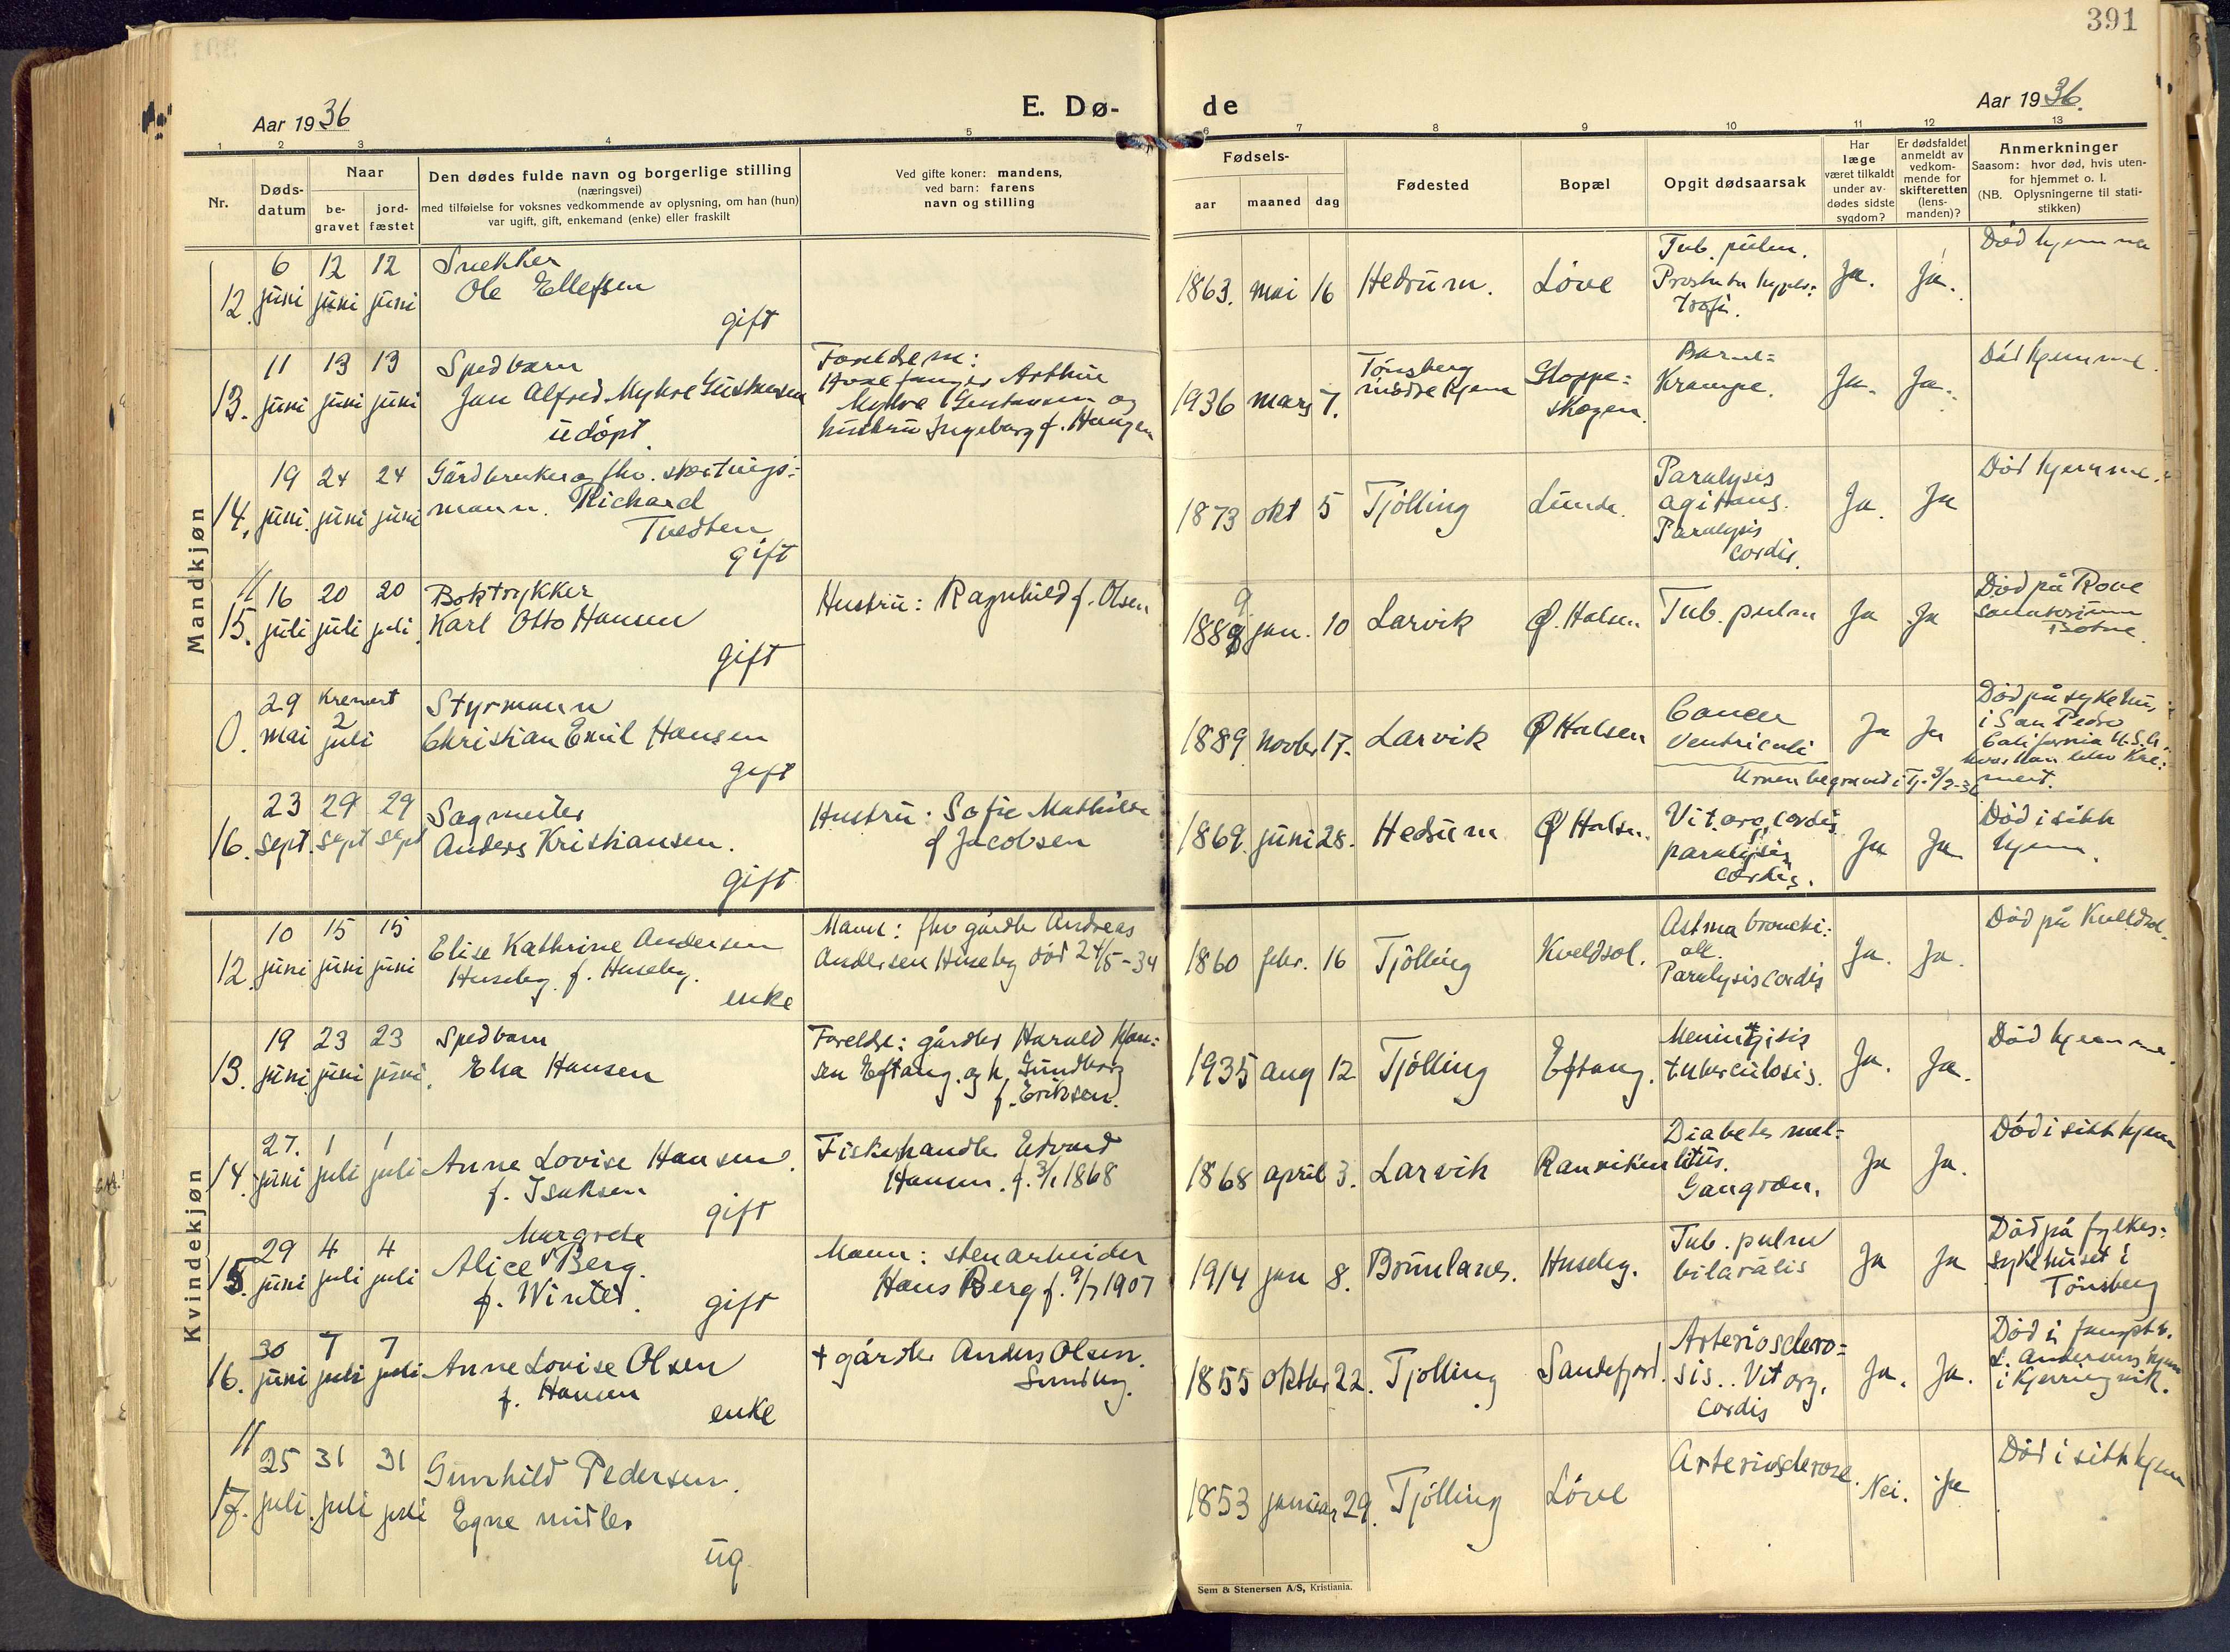 391
Aar 1936
E. Dø-
de
Aar 1936.
1 2 3 4 5 6 7 8 9 10 11 12 13
Nr.
Døds-
datum
Naar
be-
gravet
jord-
fæstet
Den dødes fulde navn og borgerlige stilling
(næringsvei)
med tilføielse for voksnes vedkommende av oplysning, om han (hun)
var ugift, gift, enkemand (enke) eller fraskilt
Ved gifte koner: mandens,
ved barn: farens
navn og stilling
Fødsels-
aar maaned dag
Fødested
Bopæl
Opgit dødsaarsak
Har
læge
været tilkaldt
under av-
dødes sidste
sygdom?
Er dødsfaldet
anmeldt av
vedkom-
mende for
skifteretten
(lens-
manden)?
Anmerkninger
Saasom: hvor død, hvis uten-
for hjemmet o. l.
(NB. Oplysningerne til stati-
stikken)
Mandkjøn
12. 6 juni 12 juni 12 juni
Snekker
Ole Ellefsen
gift
1863. mai 16 Hedrum. Löve
Tub. pulm.
Prostata hyper-
trofi.
Ja. Ja.
Död hjemme
13. 11 juni 13 juni 13 juni
Spedbarn
Jan Alfred Myhre Gustavsen
udöpt.
Foreldrene:
Hvalfanger Arthur
Myhre Gustavsen og
hustru Ingeborg f. Haugen
1936 mars 7.
Tönsberg
mödrehjem
Gloppe-
skogen
Barne-
Krampe.
Ja. Ja.
Död hjemme.
14. 19 juni 24 juni 24 juni
Gårdbruker og fhv. stortings-
mann. Richard
Tvedten
gift
1873 okt 5 Tjölling Lunde.
Paralysis
agitans.
Paralysis
cordis.
Ja. Ja
Död hjemme.
15. 16 juli 20 juli 20 juli
Boktrykker
Karl Otto Hansen
gift
Hustru: Ragnhild f. Olsen
1889 jan. 10 Larvik Ø. Halsen Tub. pulm Ja Ja
Död på Rove
sanatorium
Botne.
0. 29 mai Kremert 2 juli
Styrmann
Christian Emil Hansen
gift
1889 novbr 17. Larvik Ø Halsen
Cancer
Ventriculi
Ja Ja
Död på sykehus
i San Pedro
California U.S.A.
hvor han blev kre-
mert.
Urnen begravet i Tj. 3/2-36
16. 23 sept. 29 sept 29 sept
Sagmester
Anders Kristiansen.
gift
Hustru: Sofie Mathilde
f Jacobsen
1869. juni 28. Hedrum Ø Halsen.
Vit. org. cordis
paralysis
cordis.
Ja Ja
Död i sitt
hjem.
Kvindekjøn
12. 10 juni 15 juni 15 juni
Elise Kathrine Andersen
Huseby f. Huseby.
enke
Mann: fhv gårdbr Andreas
Andersen Huseby död 24/5-34
1860 febr. 16 Tjölling Kveldsol.
Astma bronchi-
ale.
Paralysis cordis
Ja. Ja.
Död på Kveldsol.
13. 19 juni 23 juni 23 juni
Spedbarn
Elsa Hansen
Foreldre: gårdbr Harald Han-
sen Eftang. og h. Gundborg
f. Eriksen.
1935 aug 12 Tjölling Eftang.
Meningitis
tuberculosis.
Ja. Ja.
Död hjemme.
14. 27. juni 1 juli 1 juli
Anne Lovise Hansen.
f. Isaksen
gift
Fiskehandler Edvard
Hansen. f. 3/1 1868
1868 april 3. Larvik Ranviken
Diabetes mel-
litus.
Gangræn.
Ja Ja.
Död i sitt hjem
15. 29 juni 4 juli 4 juli
Margrete
Alice Berg.
f. Winter.
gift
Mann: stenarbeider
Hans Berg f. 9/7 1907
1914 jan 8. Brunlanes. Huseby.
Tub. pulm
bilaralis
Ja Ja
Död på fylkes-
sykehuset i
Tönsberg
16. 30 juni 7 juli 7 juli
Anne Lovise Olsen
f. Hansen
enke
+ gårdbr Anders Olsen.
Sundby.
1855 oktbr 22. Tjölling Sandefjord.
Arteriosclero-
sis.. Vit org.
Cordis
Ja. Ja.
Död i
L. Andersens hjem
i Kjerringvik.
17. 25 juli 31 juli 31 juli
Gunhild Pedersen.
Egne midler
ug.
1853 januar 29. Tjölling Löve
Arteriosclerose.
Nei. Ja
Död i sitt hjem
Sem & Stenersen A/S, Kristiania.